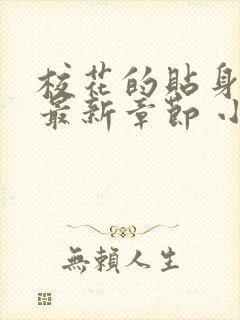 校花的貼身
最新章節 小
無賴人生